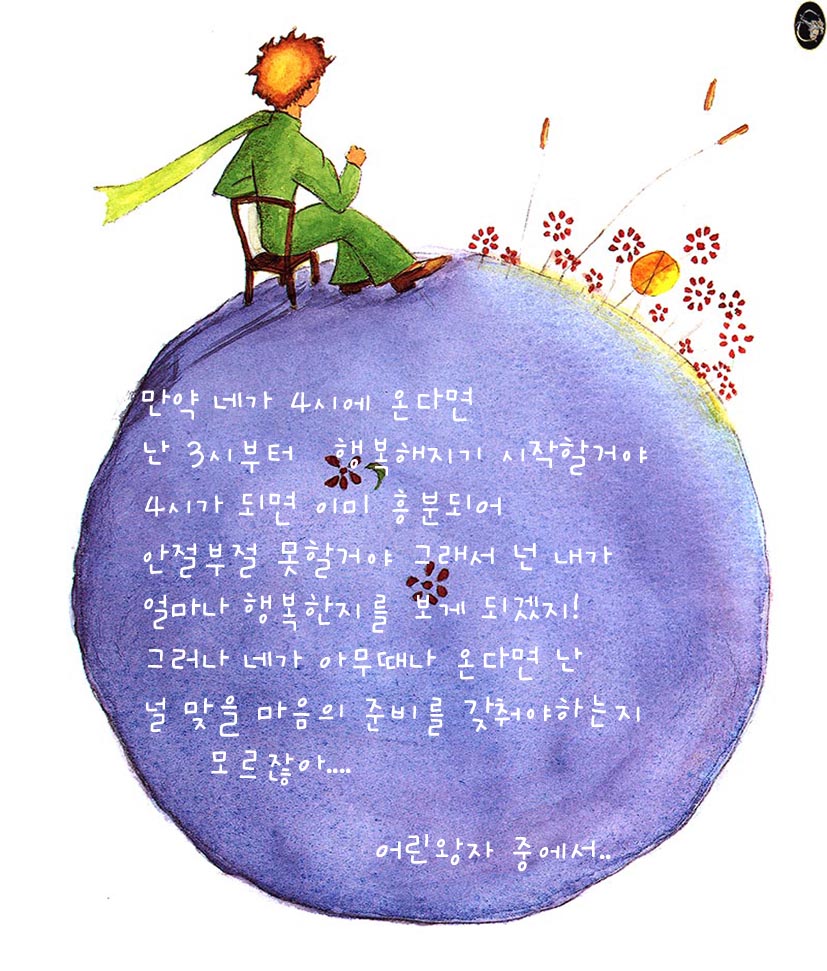 만약 네가 4시에 온다면
난 3시부터 행복해지기 시작할거야
4시가 되면 이미 흥분되어
안절부절 못할거야 그래서 넌 내가
얼마나 행복한지를 보게 되겠지!
그러나 네가 아무때나 온다면 난
널 맞을 마음의 준비를 갖춰야하는지
모르잖아....
어린왕자 중에서..